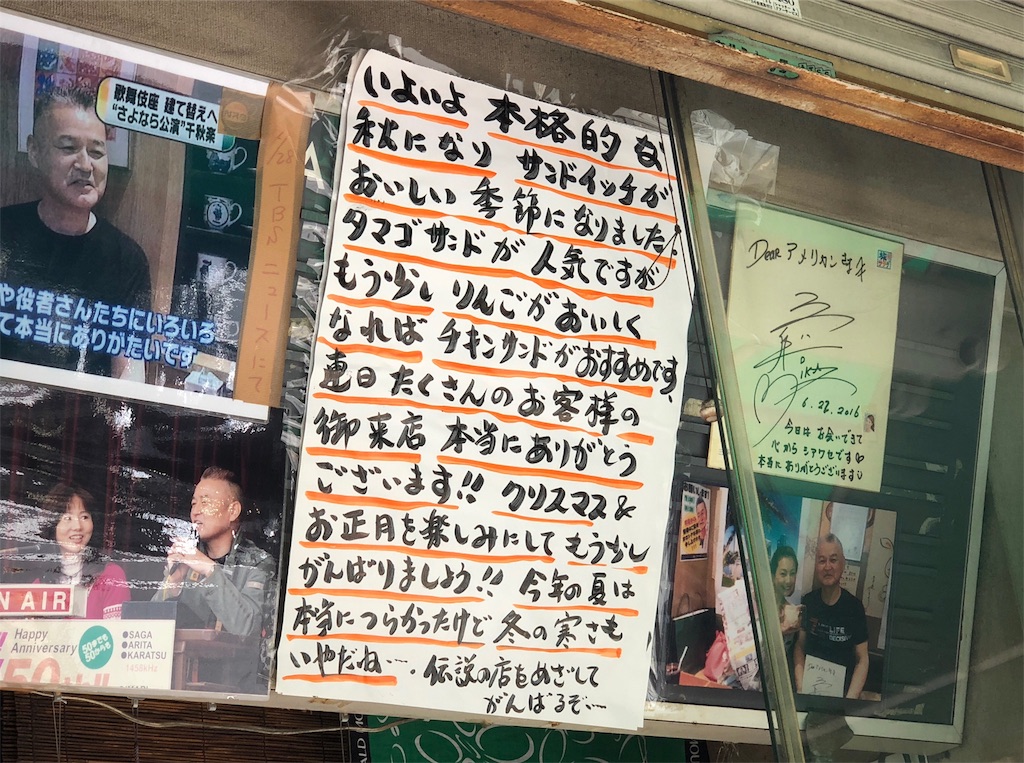 歌舞伎座 建て替えへ
“さよなら公演”千秋楽
/28 TBSニュースにて
や役者さんたちにいろいろ
て本当にありがたいです
N AIR
Happy
Anniversary
50
50年でも
50からも
●SAGA
●ARITA
●KARATSU
1458kHz
いよいよ 本格的な
秋になり サンドイッチが
おいしい 季節になりました。
タマゴサンドが 人気ですが
もう少し りんごがおいしく
なれば チキンサンドがおすすめです。
連日 たくさんのお客様の
御来店 本当にありがとう
ございます!! クリスマス&
お正月を楽しみにして もう少し
がんばりましょう!! 今年の夏は
本当につらかったけど 冬の寒さも
いやだね…. 伝説の店をめざして
がんばるぞ…
Dear アメリカン
6.28.2016
今日は お会いできて
心から シアワセです♡
本当に ありがとうございます